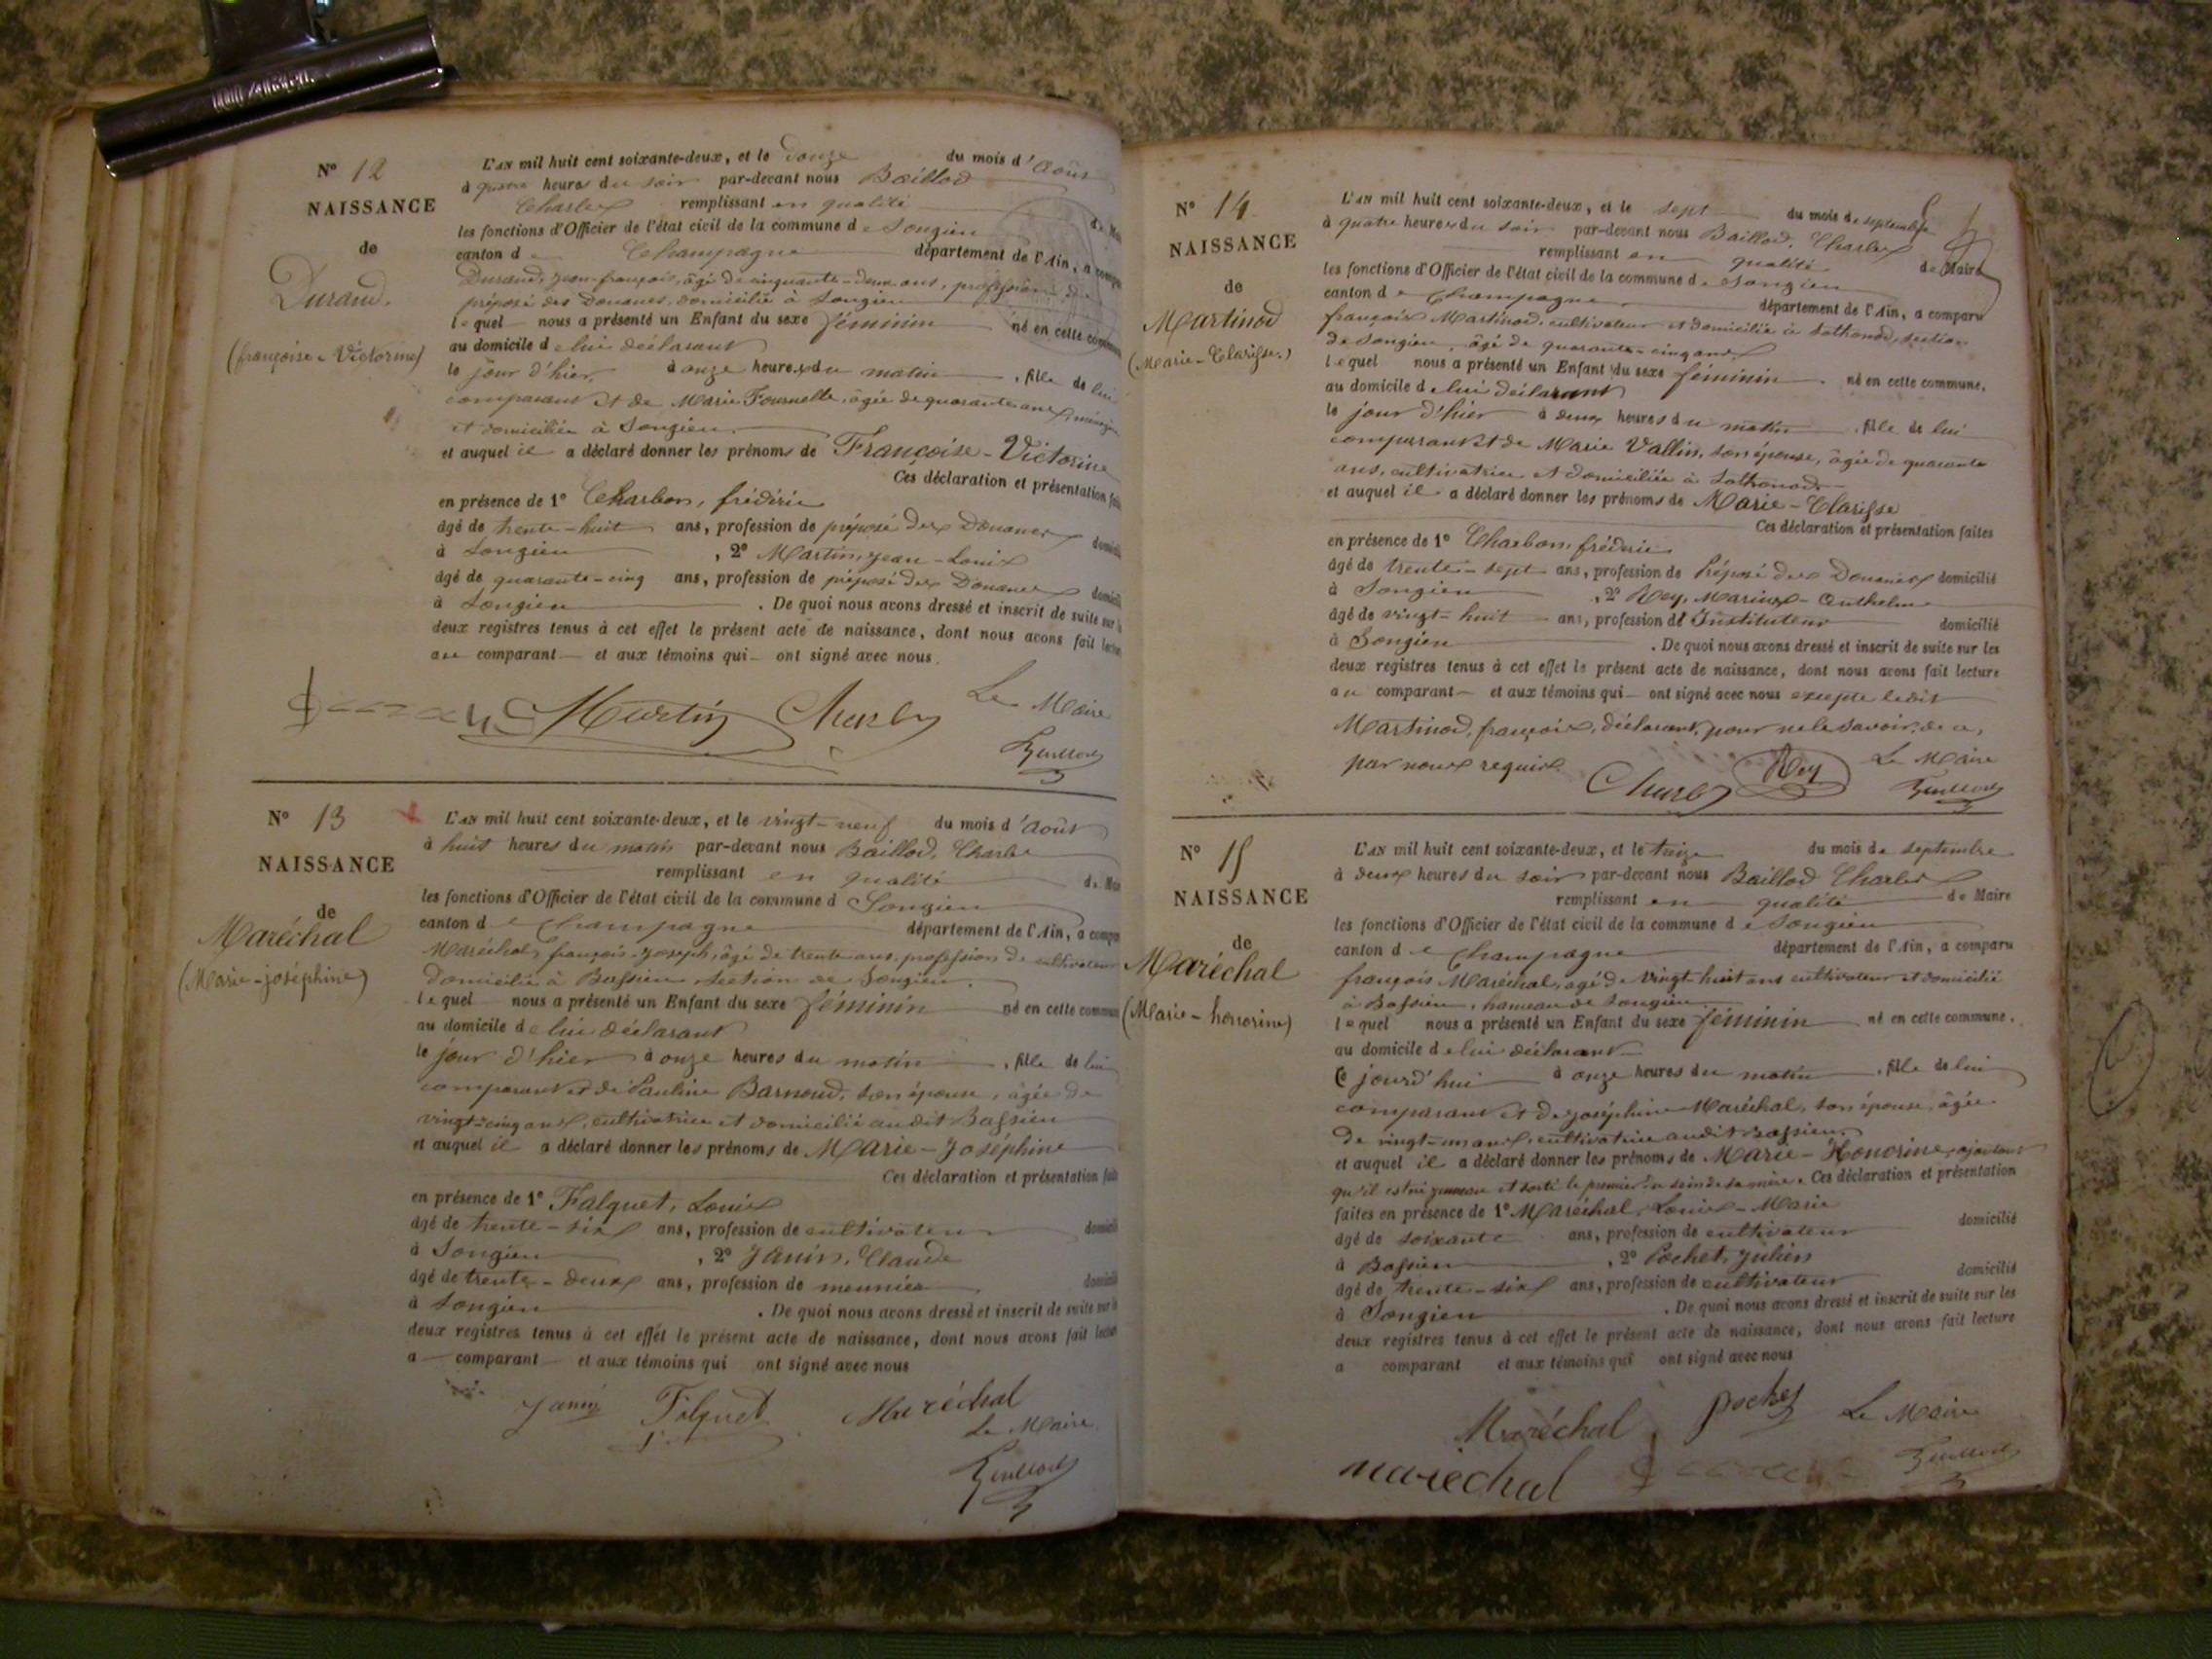 N° 12
NAISSANCE
de
Durand.
(françoise-Victorine)
L'AN mil huit cent soixante-deux, et le douze du mois d'août
à quatre heures du soir par-devant nous Baillod
Charles remplissant en qualité de
les fonctions d'Officier de l'état civil de la commune de Songieu
canton de Champagne département de l'Ain, a
Durand, jean-françois, âgé de cinquante-deux ans, profession de
préposé des Douanes, domicilié à Songieu
lequel nous a présenté un Enfant du sexe féminin né en cette
au domicile de lui déclarant
le jour d'hier, à onze heures du matin, fille de lui
comparant et de Marie Fournelle, âgée de quarante ans,
et domiciliée à Songieu.
et auquel il a déclaré donner les prénoms de Françoise-Victorine
Ces déclaration et présentation
en présence de 1° Charbon, frédéric
âgé de trente-huit ans, profession de préposé des Douanes
à Songieu, 2° Martin, jean-Louis
âgé de quarante-cinq ans, profession de préposé des Douanes
à Songieu. De quoi nous avons dressé et inscrit de suite sur
deux registres tenus à cet effet le présent acte de naissance, dont nous avons fait
au comparant et aux témoins qui ont signé avec nous.
Martin Charbon Le Maire
Baillod
N° 13
NAISSANCE
de
Maréchal
(Marie-joséphine)
L'AN mil huit cent soixante-deux, et le vingt-neuf du mois d'août
à huit heures du matin par-devant nous Baillod, Charles
remplissant en qualité de
les fonctions d'Officier de l'état civil de la commune d Songieu
canton de Champagne département de l'Ain, a
Maréchal, françois-joseph, âgé de trente ans, profession de cultivateur
domicilié à Bassieu, section de Songieu.
lequel nous a présenté un Enfant du sexe féminin né en cette
au domicile de lui déclarant
le jour d'hier à onze heures du matin, fille de lui
comparant et de Pauline Barnoud, son épouse, âgée de
vingt-cinq ans, cultivatrice et domicilié audit Bassieu
et auquel il a déclaré donner les prénoms de Marie-Joséphine
Ces déclaration et présentation
en présence de 1° Falquet, Louis
âgé de trente-six ans, profession de cultivateur
à Songieu, 2° Janin, Claude
âgé de trente-deux ans, profession de meunier
à Songieu. De quoi nous avons dressé et inscrit de suite sur
deux registres tenus à cet effet le présent acte de naissance, dont nous avons fait
a comparant et aux témoins qui ont signé avec nous
Janin Falquet Maréchal
Le Maire
Baillod
N° 14
NAISSANCE
de
Martinod
(Marie-Clarisse.)
L'AN mil huit cent soixante-deux, et le sept du mois de septembre
à quatre heures du soir par-devant nous Baillod, Charles
remplissant en qualité de Maire
les fonctions d'Officier de l'état civil de la commune de Songieu
canton de Champagne département de l'Ain, a comparu
françois Martinod, cultivateur et domicilié à Sothonod, section
de Songieu, âgé de quarante-cinq ans
lequel nous a présenté un Enfant du sexe féminin né en cette commune,
au domicile de lui déclarant
le jour d'hier à deux heures du matin, fille de lui
comparant et de Marie Vallin, son épouse, âgée de quarante
ans, cultivatrice et domiciliée à Sothonod
et auquel il a déclaré donner les prénoms de Marie-Clarisse
Ces déclaration et présentation faites
en présence de 1° Charbon, frédéric
âgé de trente-sept ans, profession de Préposé des Douanes domicilié
à Songieu, 2° Rey, Marius-Anthelme
âgé de vingt-huit ans, profession d'Instituteur domicilié
à Songieu. De quoi nous avons dressé et inscrit de suite sur les
deux registres tenus à cet effet le présent acte de naissance, dont nous avons fait lecture
au comparant et aux témoins qui ont signé avec nous excepté ledit
Martinod, françois, déclarant, pour ne le savoir, de ce,
par nous requis.
Charbon Rey Le Maire
Baillod
N° 15
NAISSANCE
de
Maréchal
(Marie-honorine)
L'AN mil huit cent soixante-deux, et le treize du mois de septembre
à deux heures du soir par-devant nous Baillod Charles
remplissant en qualité de Maire
les fonctions d'Officier de l'état civil de la commune de Songieu
canton de Champagne département de l'Ain, a comparu
françois Maréchal, âgé de vingt-huit ans cultivateur et domicilié
à Bassieu, hameau de Songieu.
lequel nous a présenté un Enfant du sexe féminin né en cette commune.
au domicile de lui déclarant
Ce jourd'hui à onze heures du matin, fille de lui
comparant et de joséphine Maréchal, son épouse, âgée
de vingt-un ans, cultivatrice audit Bassieu.
et auquel il a déclaré donner les prénoms de Marie-Honorine, ajoutant
qu'il est né jumeau et sorti le premier du sein de sa mère. Ces déclaration et présentation
faites en présence de 1° Maréchal, Louis-Marie
âgé de soixante ans, profession de cultivateur domicilié
à Bassieu, 2° Pochet, Julien
âgé de trente-six ans, profession de cultivateur domicilié
à Songieu. De quoi nous avons dressé et inscrit de suite sur les
deux registres tenus à cet effet le présent acte de naissance, dont nous avons fait lecture
a comparant et aux témoins qui ont signé avec nous
Maréchal pochet Le Maire
marechal Baillod